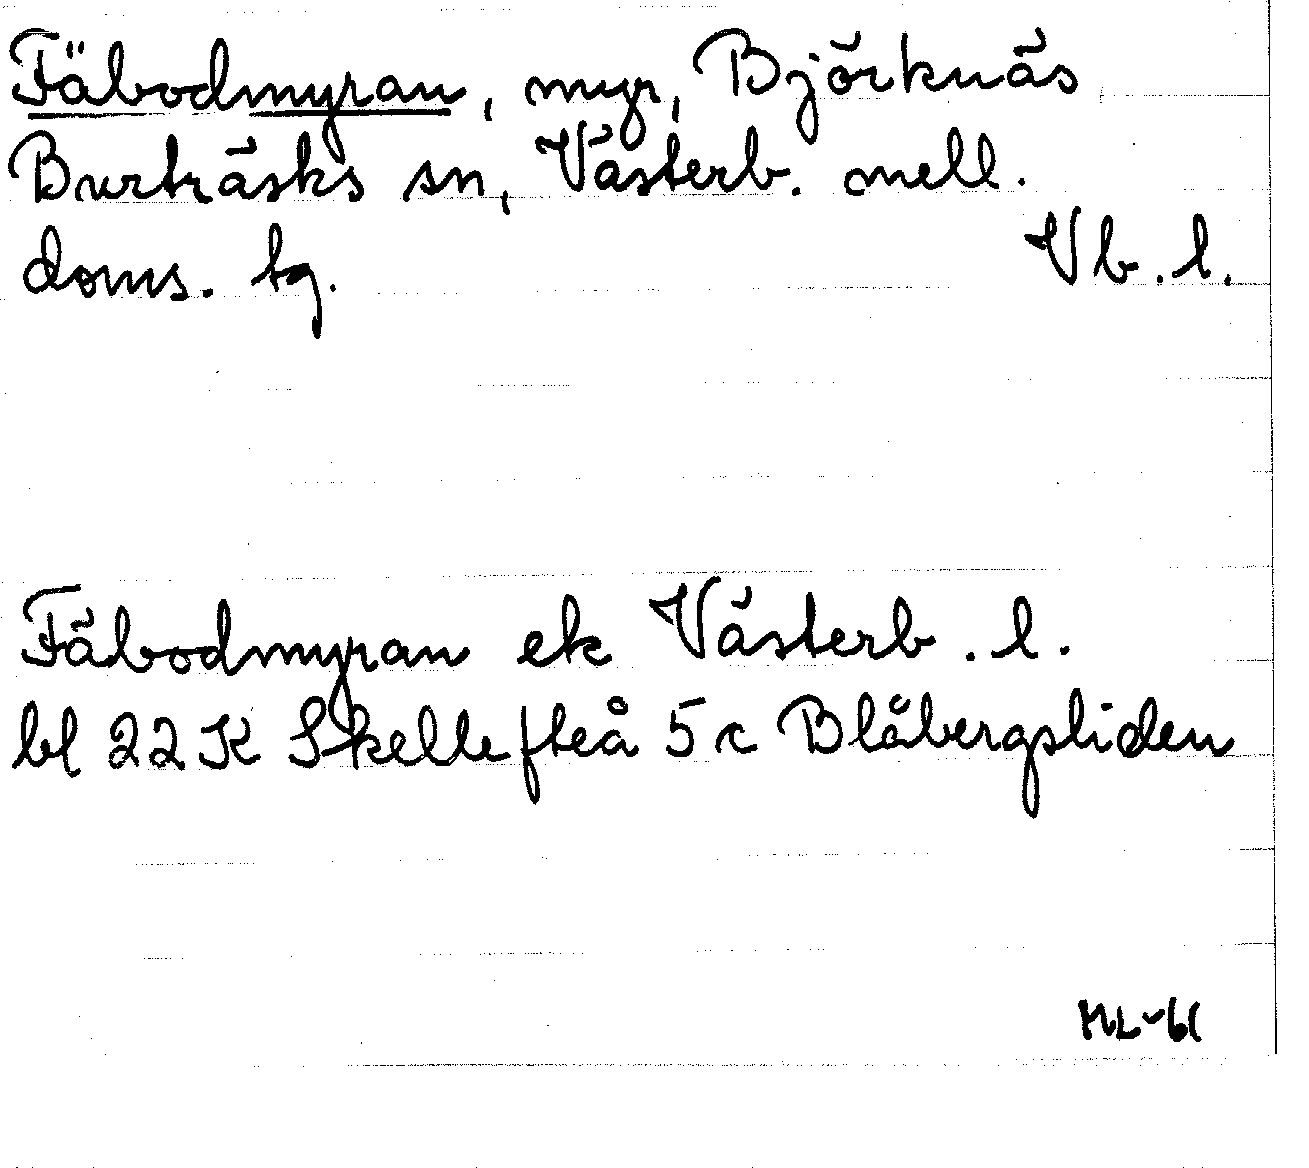 Fäbodmyran, myr, Björknäs
Burträsks sn, Västerb. mell.
doms. tg. Vb. l.
Fäbodmyran ek Västerb. l.
bl 22 K Skellefteå 5 c Blåbergsliden